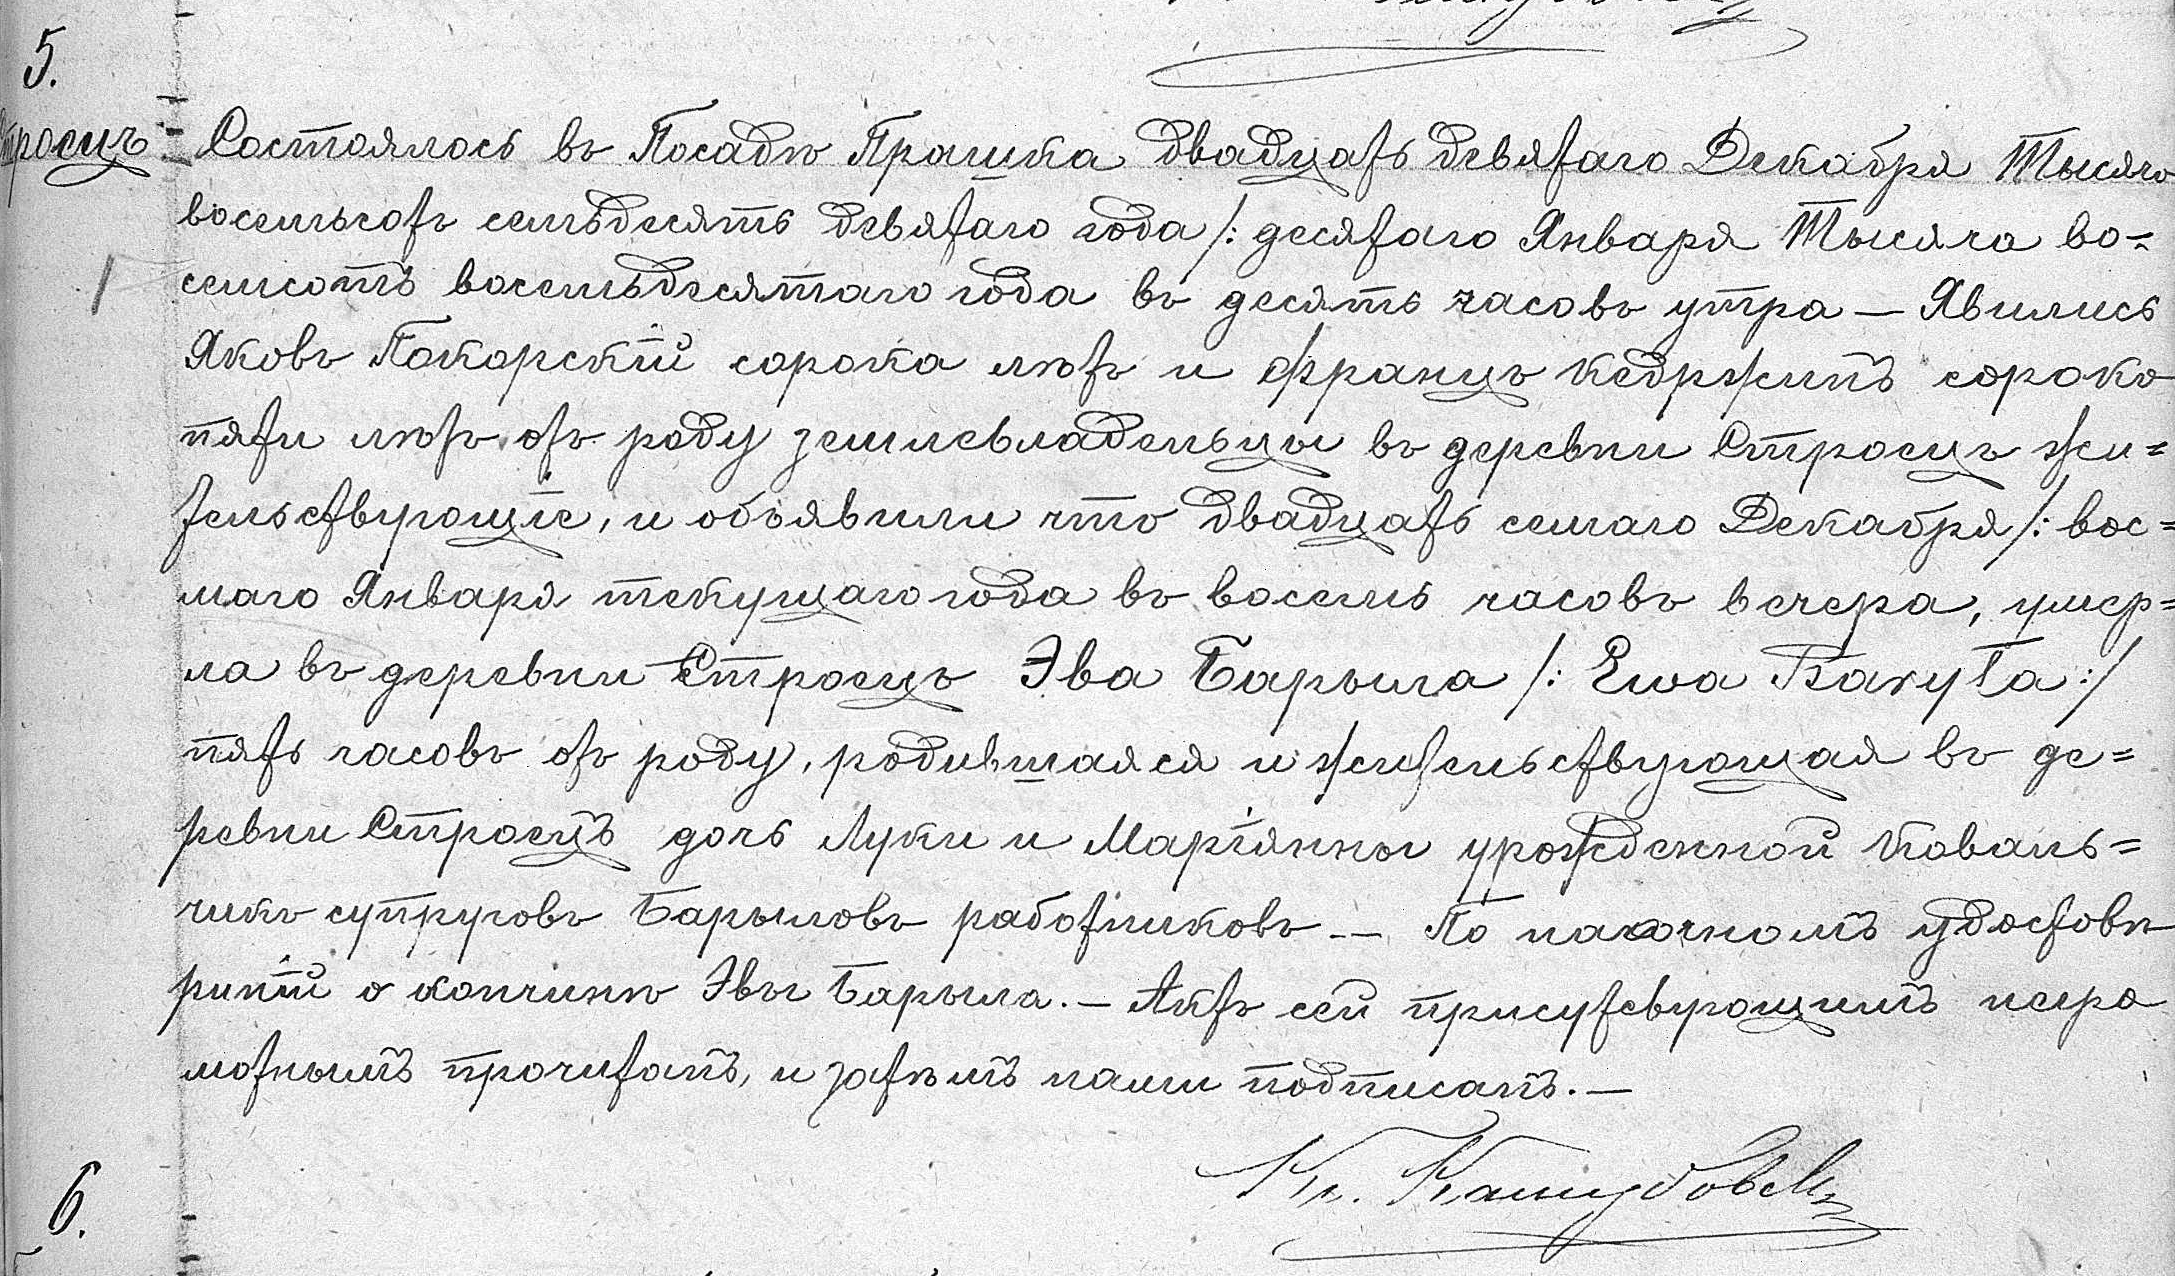 5.
Стросцъ
Состоялось въ Посадѣ Прашка двадцать девятаго Декабря Тысяча
восемьсотъ семьдесятъ девятаго года /: десятаго Января Тысяча во-
семсотъ восемьдесятаго года въ десять часовъ утра — Явились
Яковъ Покорскій сорока лѣтъ и Францъ Кедржинъ сорока
пяти лѣтъ отъ роду землевладельцы въ деревни Стросцъ жи=
тельствующіе, и объявили что двадцать семаго Декабря /: вос=
маго Января текущаго года въ восемь часовъ вечера, умер=
ла въ деревни Стросцъ Эва Барыла /: Ewa Baryła :/
пять часовъ отъ роду, родившаяся и жительствующая въ де=
ревни Стросцъ дочь Луки и Маріянны урожденной Коваль=
чикъ супруговъ Барыловъ работниковъ. — По наочномъ удостовѣ
рѣніи о кончинѣ Эвы Барыла. — Актъ сей присутсвующимъ негра
мотнымъ прочитанъ, и затѣмъ нами подписанъ. —
Кс.
6.